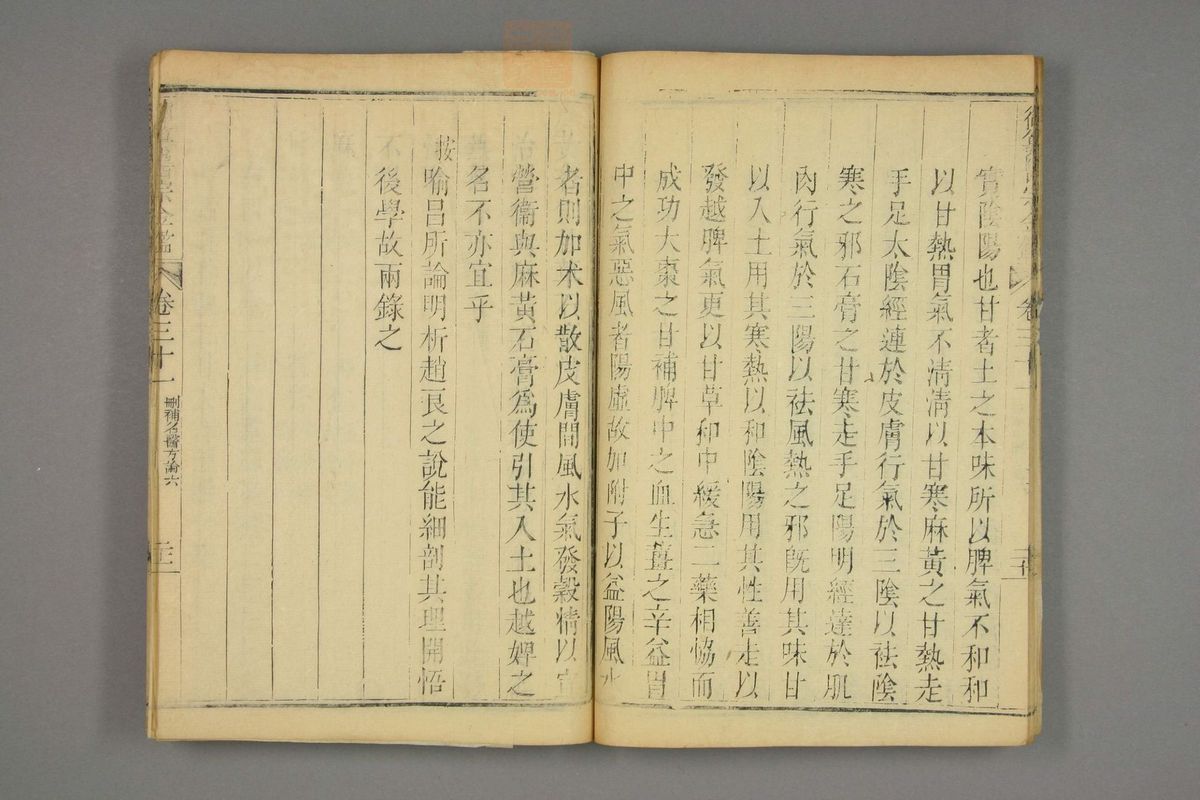 實陰陽也甘者土之本味所以脾氣不和和
以甘熱胃氣不清清以甘寒麻黃之甘熱走
手足太陰經連於皮膚行氣於三陰以祛陰
寒之邪石膏之甘寒走手足陽明經達於肌
肉行氣於三陽以祛風熱之邪旣用其味甘
以入土用其寒熱以和陰陽用其性善走以
發越脾氣更以甘草和中緩急二藥相恊而
成功大棗之甘補脾中之血生薑之辛益胃
中之氣惡風者陽虛故加附子以益陽風水
者則加术以散皮膚間風水氣發穀精以宣
營衞與麻黃石膏爲使引其入土也越婢之
名不亦宜乎
按喻昌所論明析趙良之說能細剖其理開悟
後學故兩錄之
卷三十一
刪補名醫方論六